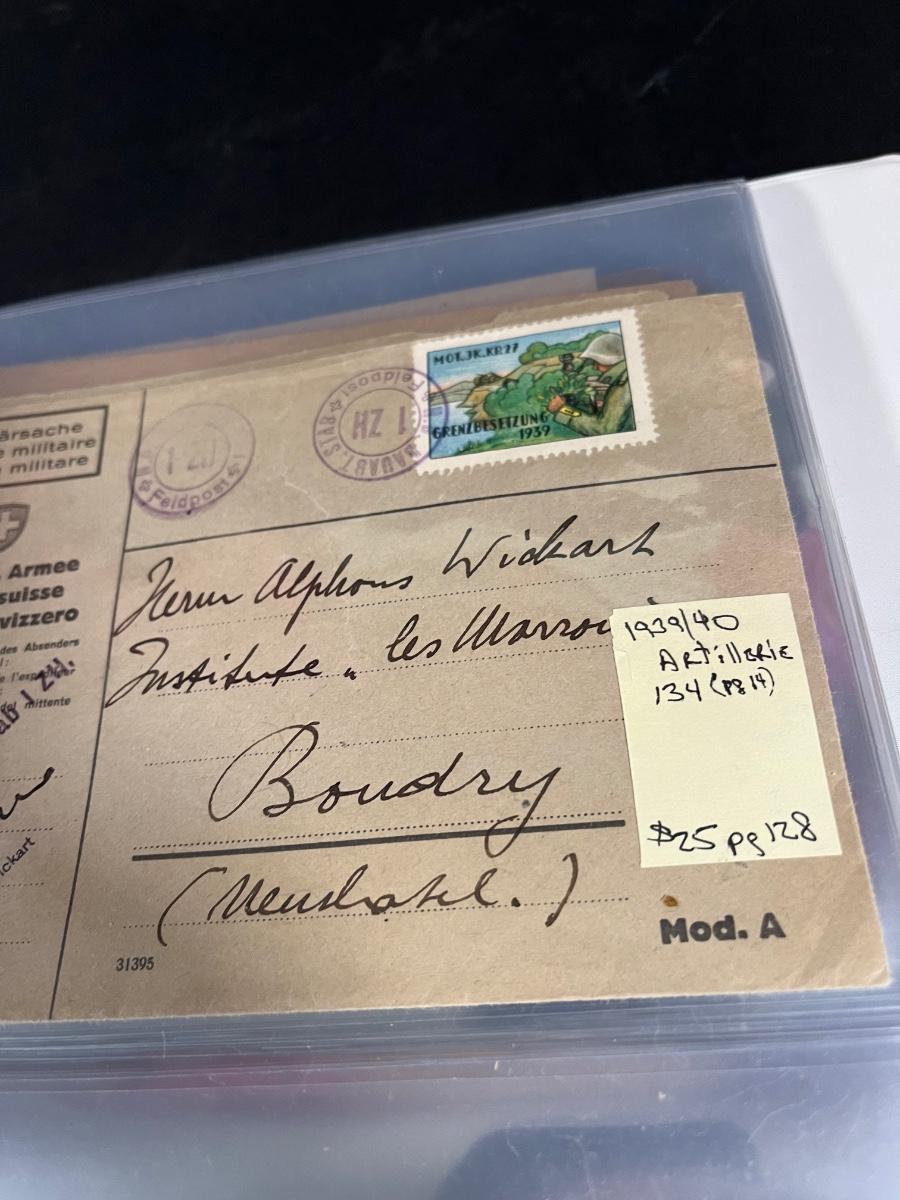 MOT.JK.KP.27
GRENZBESETZUNG
1939
Feldpost
1 ZH
BAUABT. STAB
Feldpost
ärsache
e militaire
militare
Armee
suisse
vizzero
des Absenders
mittente
ickart
Herrn Alphons Wickart
Institute „ les Marron
Boudry
(Neuchatel.)
31395
Mod. A
1939/40
ARtilleRie
134 (pg 14)
$25 pg 128